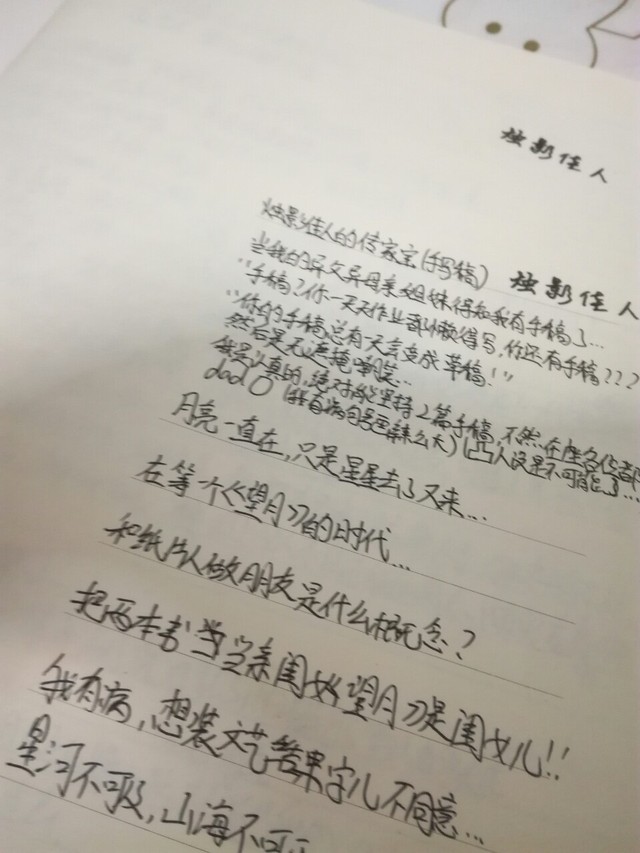 烛影佳人
烛影佳人的传家宝(手写稿) 烛影佳人
当我的异父异母亲姐妹得知我有手稿了…
"手稿?你一天天作业都懒得写,你还有手稿???
"你的手稿总有天会变成草稿!"
然后是无遮掩嘲笑…
我是认真的,绝对能坚持2篇手稿,不然在座各位都
dad〇(我有病句号画辣么大)(凸人设是不可能了…
月亮一直在,只是星星去了又来…
在等一个《望月》的时代…
和纸片人做朋友是什么概念?
把两本书当亲闺女《望月》是闺女儿!!
我有病,想装文艺结果字儿不同意…
星河不可及,山海不可